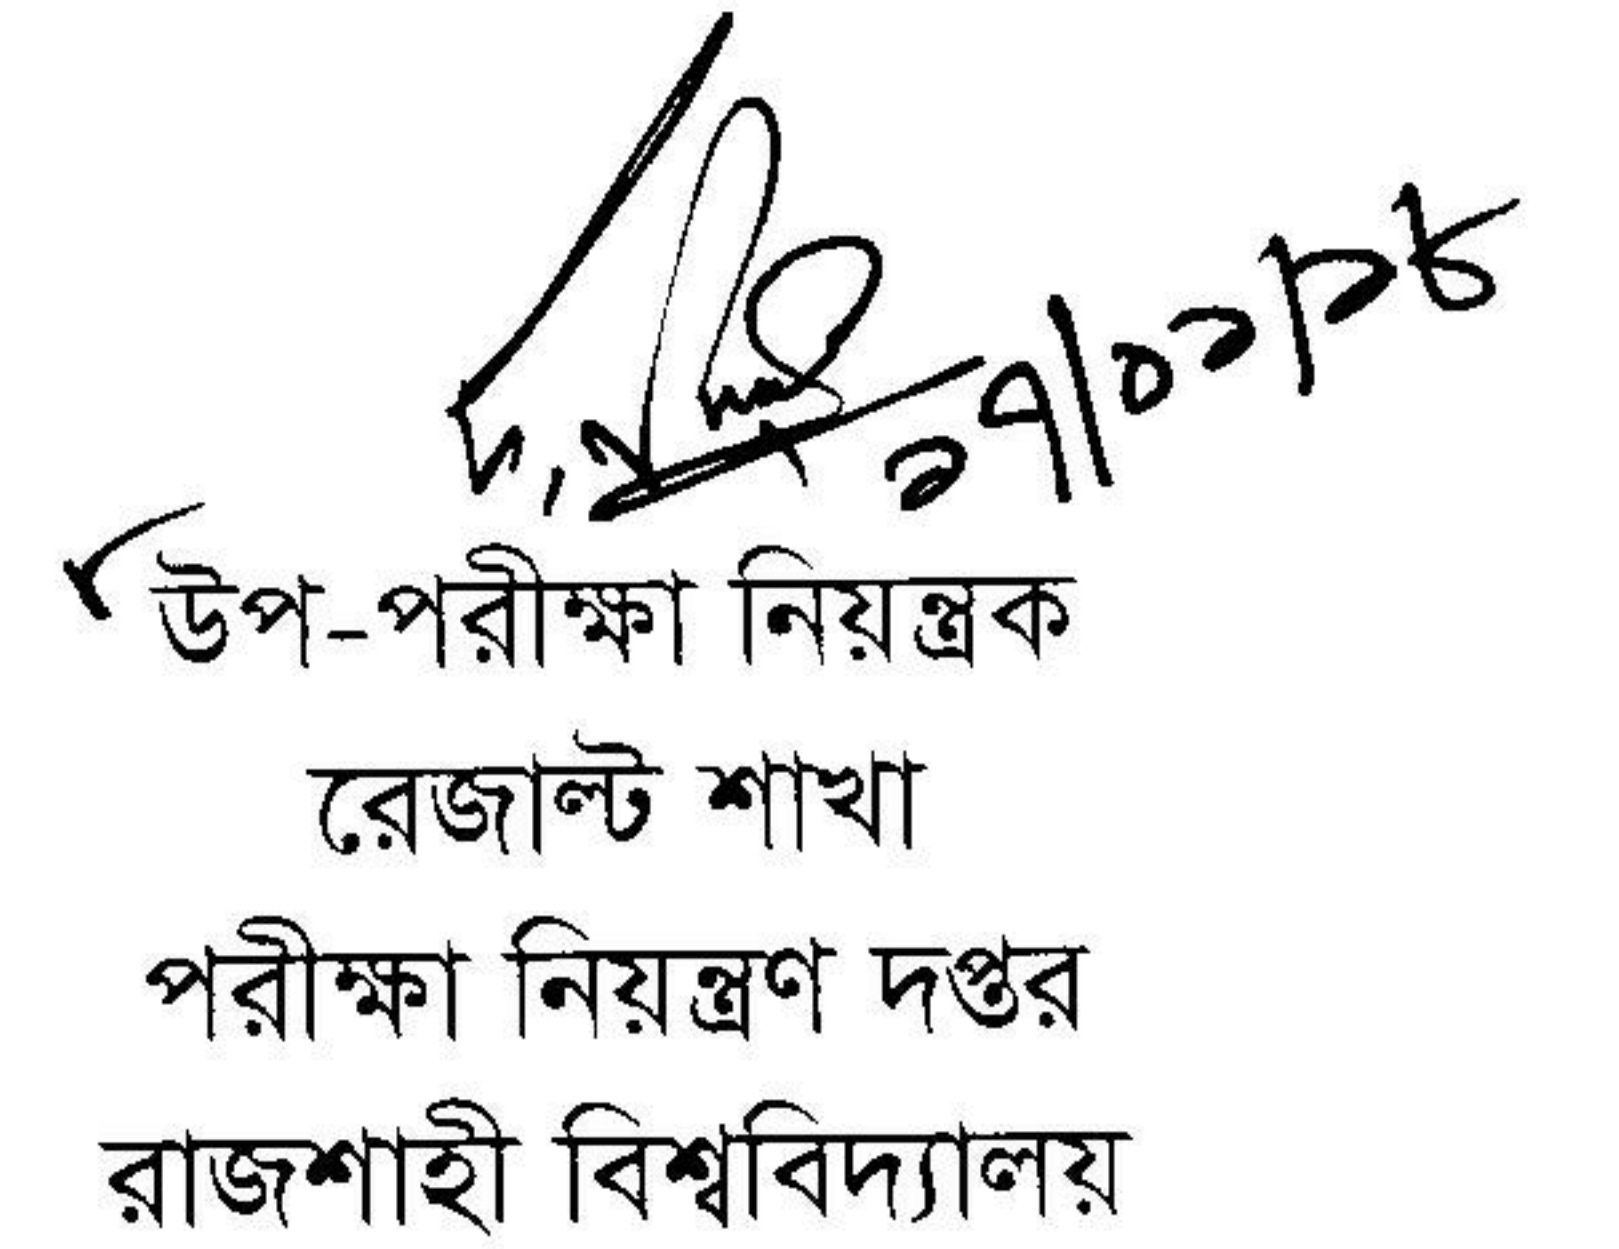 ১৭/০১/১৮
উপ-পরীক্ষা নিয়ন্ত্রক
রেজাল্ট শাখা
পরীক্ষা নিয়ন্ত্রণ দপ্তর
রাজশাহী বিশ্ববিদ্যালয়